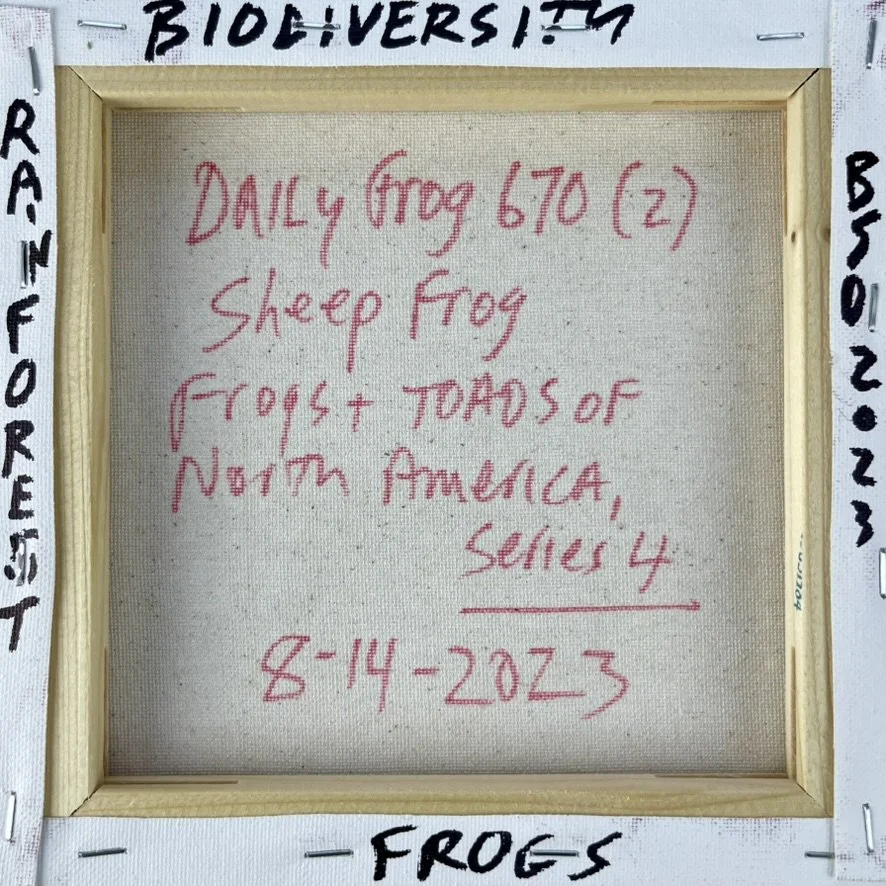 BIODIVERSITY
RAINFOREST
DAILy Frog 670 (2)
Sheep Frog
Frogs + TOADS OF
North AmericA,
Series 4
8-14-2023
BSO2023
FROGS